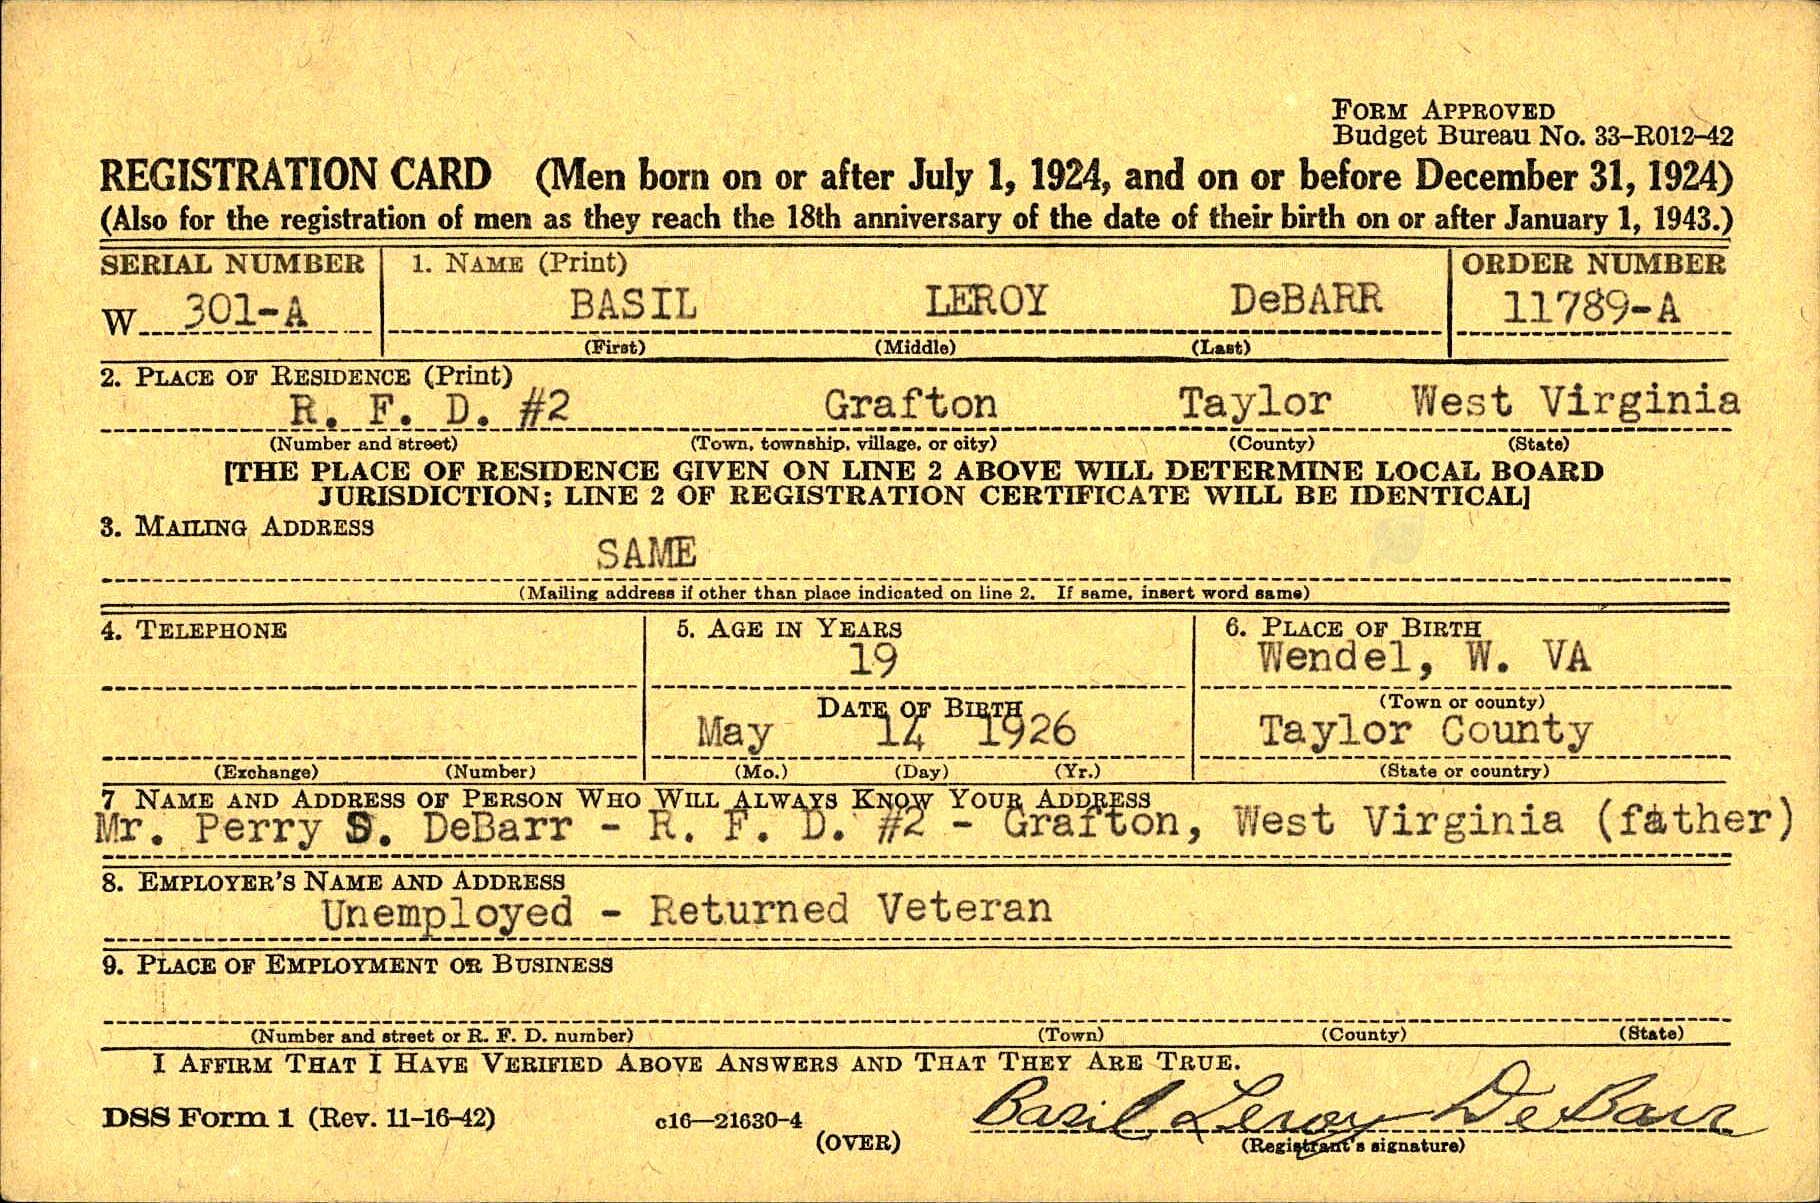 FORM APPROVED
Budget Bureau No. 33-R012-42
REGISTRATION CARD (Men born on or after July 1, 1924, and on or before December 31, 1924)
(Also for the registration of men as they reach the 18th anniversary of the date of their birth on or after January 1, 1943.)
SERIAL NUMBER 1. NAME (Print) ORDER NUMBER
W 301-A BASIL LEROY DeBARR 11789-A
(First) (Middle) (Last)
2. PLACE OF RESIDENCE (Print)
R. F. D. #2 Grafton Taylor West Virginia
(Number and street) (Town, township, village, or city) (County) (State)
[THE PLACE OF RESIDENCE GIVEN ON LINE 2 ABOVE WILL DETERMINE LOCAL BOARD
JURISDICTION; LINE 2 OF REGISTRATION CERTIFICATE WILL BE IDENTICAL]
3. MAILING ADDRESS
SAME
(Mailing address if other than place indicated on line 2. If same, insert word same)
4. TELEPHONE 5. AGE IN YEARS 6. PLACE OF BIRTH
19 Wendel, W. VA
DATE OF BIRTH (Town or county)
May 14 1926 Taylor County
(Exchange) (Number) (Mo.) (Day) (Yr.) (State or country)
7 NAME AND ADDRESS OF PERSON WHO WILL ALWAYS KNOW YOUR ADDRESS
Mr. Perry S. DeBarr - R. F. D. #2 - Grafton, West Virginia (father)
8. EMPLOYER'S NAME AND ADDRESS
Unemployed - Returned Veteran
9. PLACE OF EMPLOYMENT OR BUSINESS
(Number and street or R. F. D. number) (Town) (County) (State)
I AFFIRM THAT I HAVE VERIFIED ABOVE ANSWERS AND THAT THEY ARE TRUE.
DSS Form 1 (Rev. 11-16-42) c16—21630-4 Basil Leroy DeBarr
(OVER) (Registrant's signature)